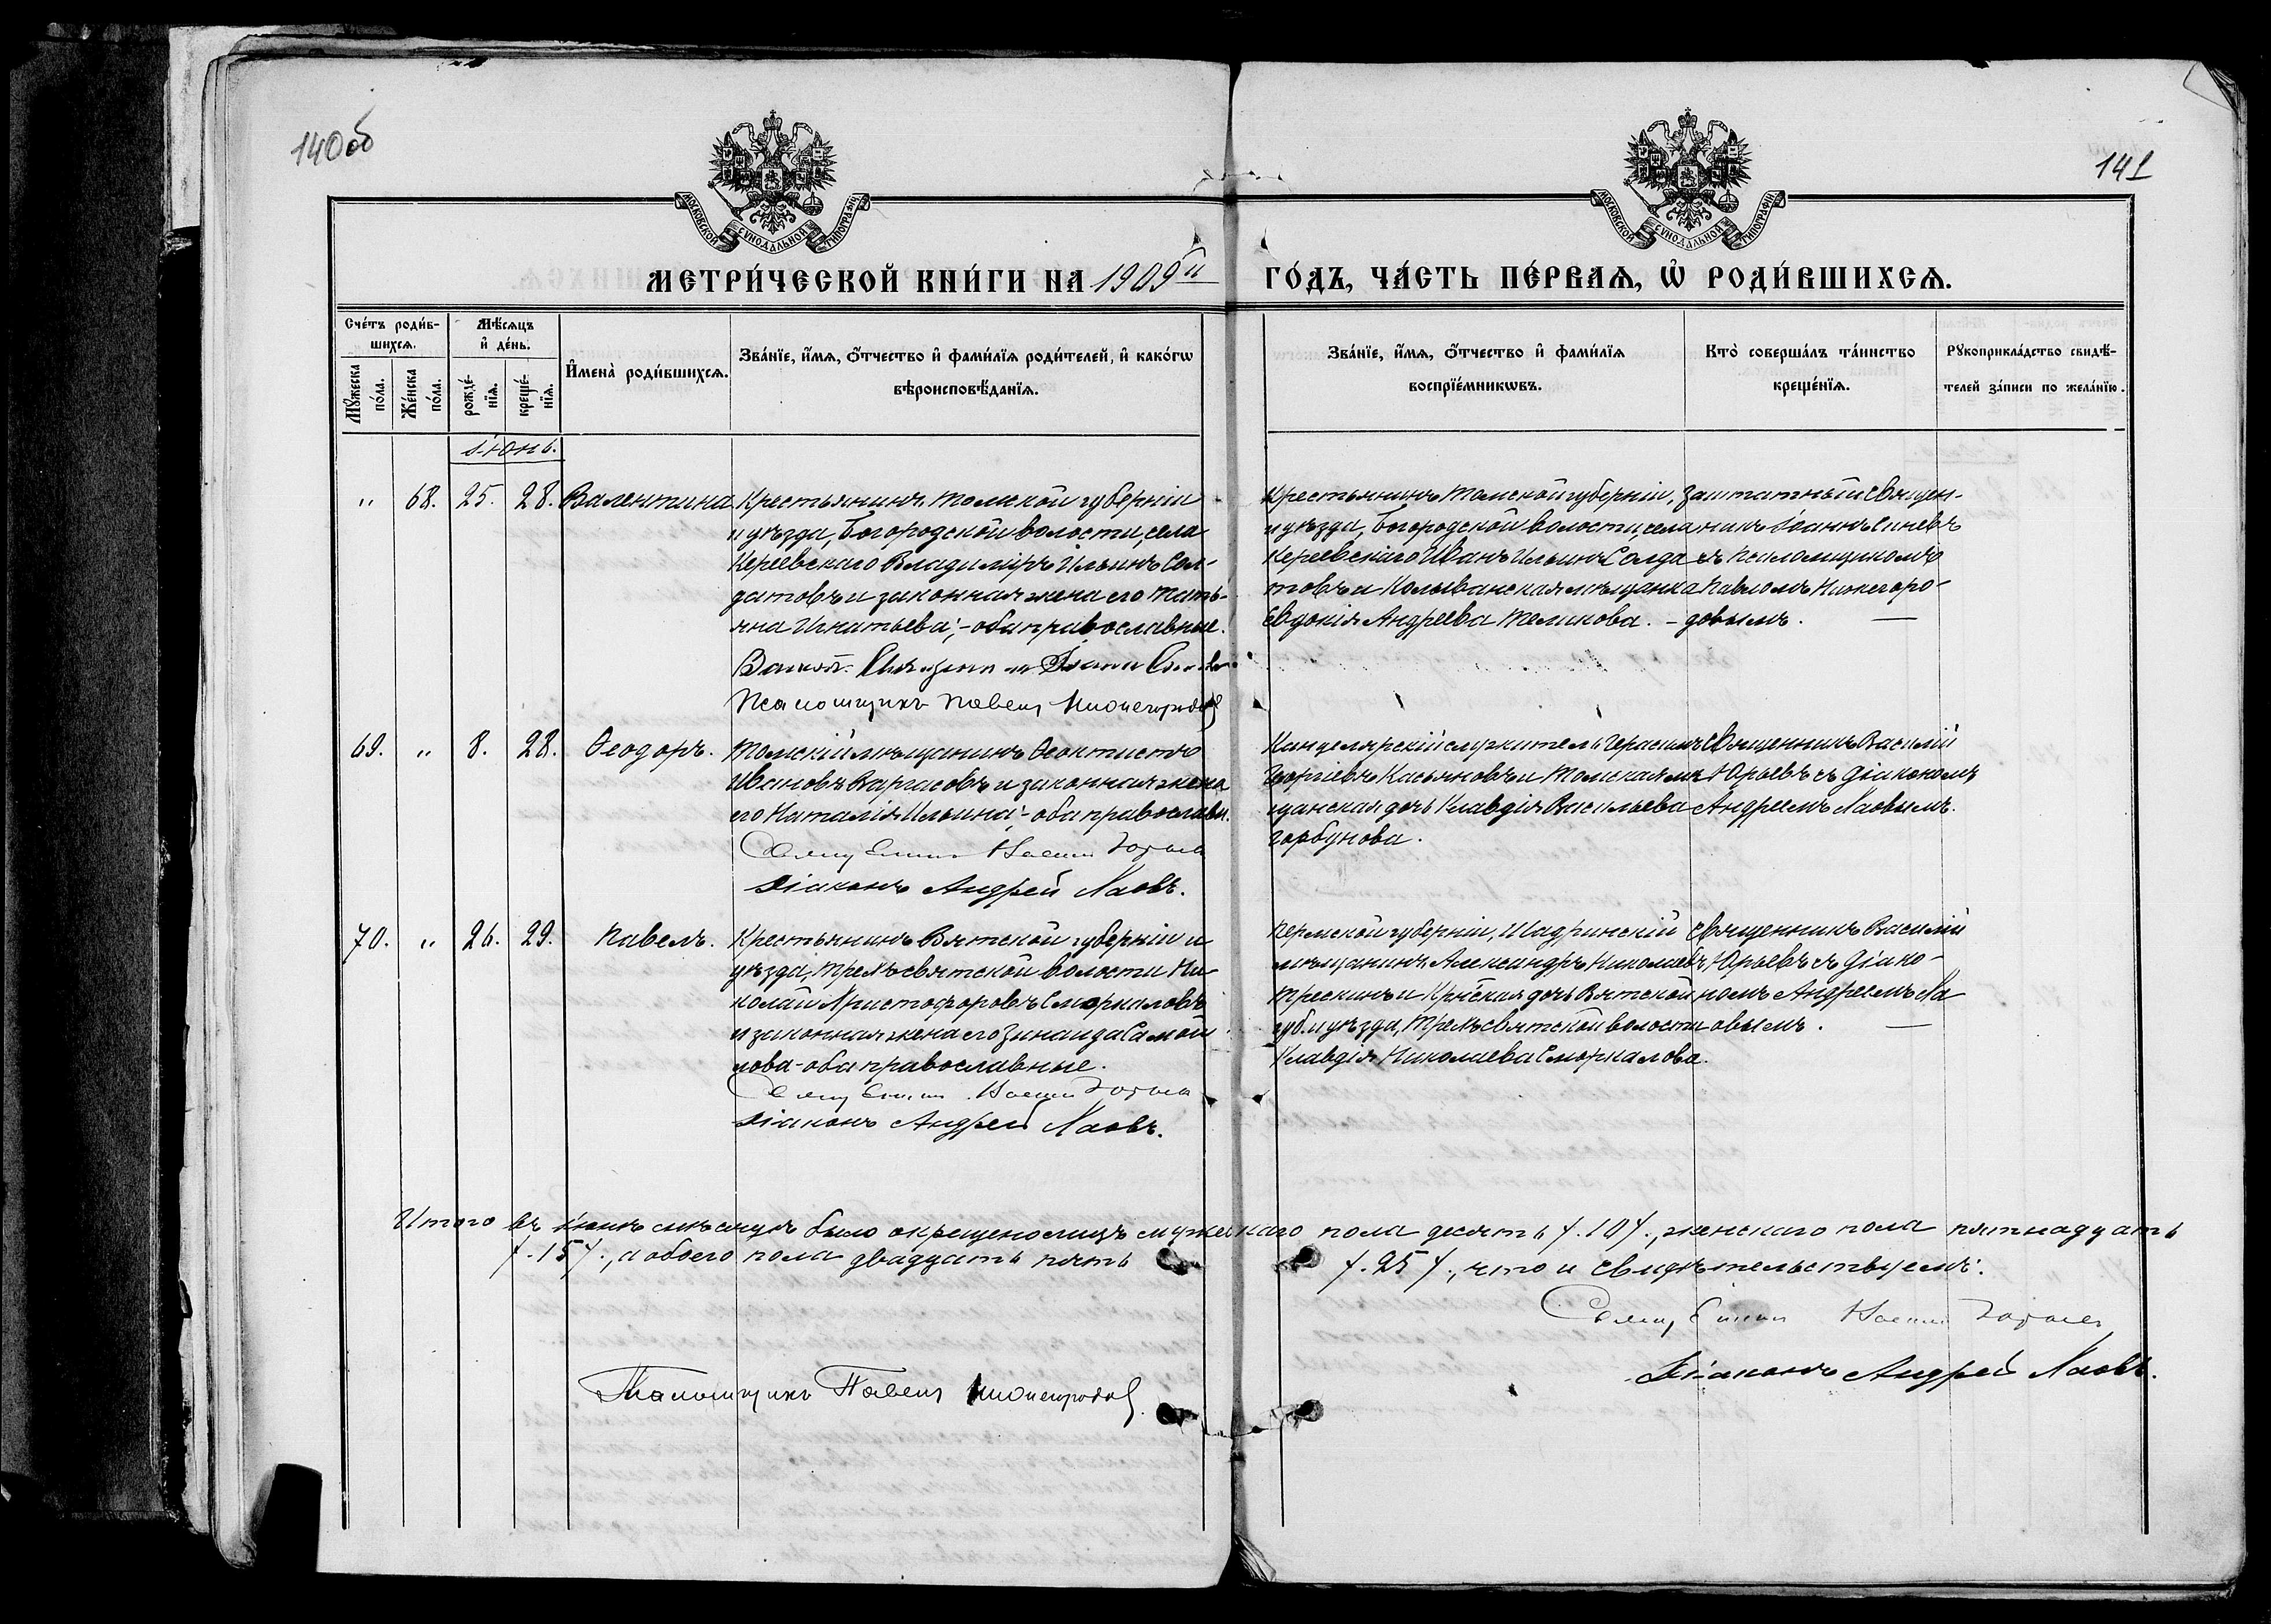 140об
141
МОСКОВСКОЙ СѴНОДАЛЬНОЙ ТИПОГРАФІИ
МОСКОВСКОЙ СѴНОДАЛЬНОЙ ТИПОГРАФІИ
МЕТРИ́ЧЕСКОЙ КНИ́ГИ НА 1909й ГО́ДЪ, ЧА́СТЬ ПЕ́РВАѦ, Ѽ РОДИ́ВШИХСѦ.
Сче́тъ роди́в-
шихсѧ.
Мꙋ́жеска по́ла.
Же́нска по́ла.
Мѣ́сѧцъ
и҆ де́нь.
рожде́-нїѧ.
креще́-нїѧ.
И҆мена̀ роди́вшихсѧ.
Зва́нїе, и҆́мѧ, ѻ҆́тчество и҆ фами́лїѧ роди́телей, и҆ како́гѡ
вѣроисповѣ́данїѧ.
Зва́нїе, и҆́мѧ, ѻ҆́тчество и҆ фами́лїѧ
воспрїе́мникѡвъ.
Кто̀ соверша́лъ та́инство
креще́нїѧ.
Рꙋкоприкла́дство свидѣ́-
телей за́писи по жела́нїю.
Іюнь.
" 68. 25. 28. Валентина
Крестьянинъ Томской губерніи
и уѣзда, Богородской волости, села
Кереевскаго Владиміръ Ильинъ Сол-
датовъ и законная жена его Тать-
яна Игнатьева; - оба православные.
Заштат. Священникъ Іоаннъ Синевъ
Псаломщикъ Павелъ Нижегородовъ
Крестьянинъ Томской губерніи,
и уѣзда, Богородской волости, села
Кереевскаго Иванъ Ильинъ Солда
товъ и Колыванская мѣщанка
Евдокія Андреева Теликова. -
Заштатный Священ-
никъ Іоаннъ Синевъ
съ псаломщикомъ
Павломъ Нижегоро-
довымъ. —
69. " 8. 28. Ѳеодоръ.
Томскій мѣщанинъ Ѳеоктистъ
Ивановъ Варгасовъ и законная жена
его Наталія Ильина; - оба православн.
Священникъ Василій Юрьевъ
Діаконъ Андрей Лаовъ.
Канцелярскій служитель Герасимъ
Георгіевъ Касьяновъ и Томская мѣ
щанская дочь Клавдія Васильева
Горбунова.
Священникъ Василій
Юрьевъ съ діакономъ
Андреемъ Лаовымъ.
70. " 26. 29. Павелъ.
Крестьянинъ Вятской губерніи и
уѣзда, Трехъсвятской волости Ни-
колай Христофоровъ Сморкаловъ
и законная жена его Зинаида Самой
лова - оба православные.
Священникъ Василій Юрьевъ
Діаконъ Андрей Лаовъ.
Пермской губерніи, Шадринскій
мѣщанинъ Александръ Николаевъ
Трескинъ и Кр-нская дочь Вятской
губ. и уѣзда, Трехъсвятской волости
Клавдія Николаева Сморкалова.
Священникъ Василій
Юрьевъ съ діако-
номъ Андреемъ Ла
овымъ. —
Итого въ іюнѣ мѣсяцѣ было окрещено лицъ мужескаго пола десять /.10/., женскаго пола пятнадцать
/.15/., а обоего пола двадцать пять /.25/., что и свидѣтельствуемъ:
Священникъ Василій Юрьевъ
Діаконъ Андрей Лаовъ.
Псаломщикъ Павелъ Нижегородовъ.